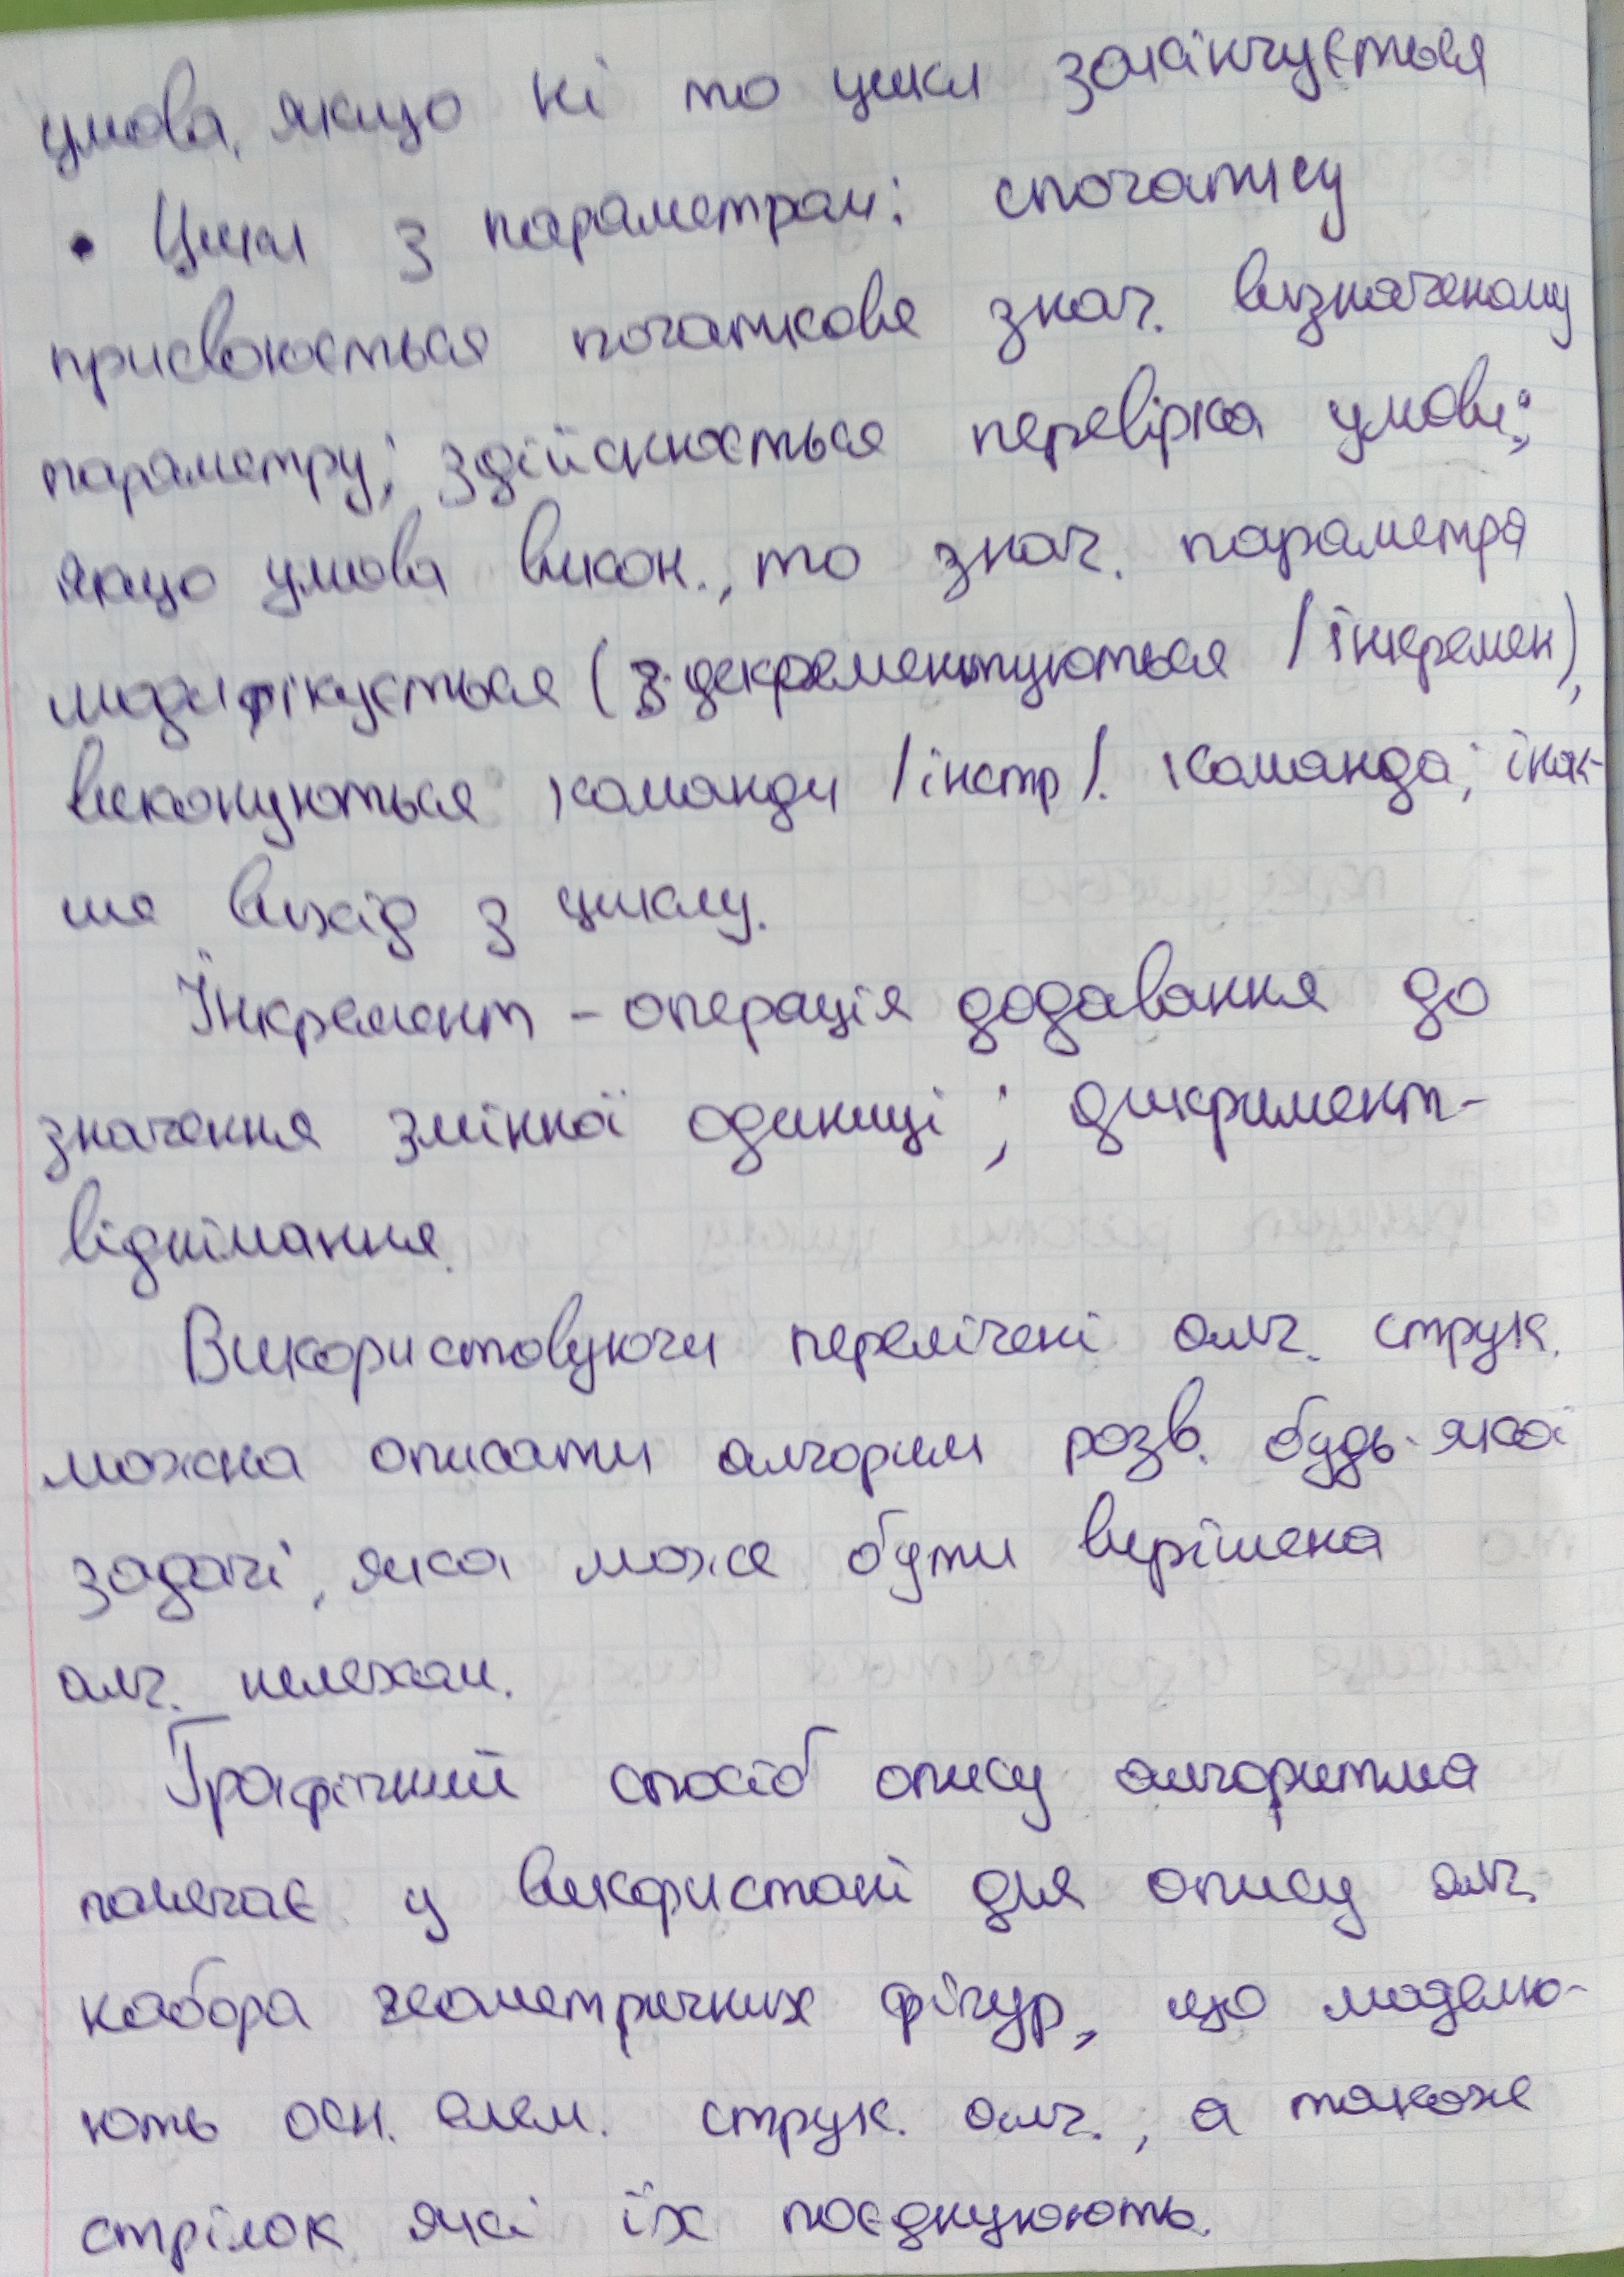 умова, якщо ні то цикл закінчується
• Цикл з параметрам: спочатку
присвоюється початкове знач. визначеному
параметру; здійснюється перевірка умови;
якщо умова викон., то знач. параметра
модифікується ( декрементуються / інкремен),
виконуються команди /інстр/. команда; інак-
ше вихід з циклу.
Інкремент - операція додавання до
значення змінної одиниці; дикримент-
віднімання.
Використовуючи перелічені алг. струк.
можна описати алгорим розв. будь-якої
задачі, яка може бути вирішена
алг. шляхам.
Графічний спосіб опису алгоритма
полягає у використані для опису алг.
набора геометричних фігур, що моделю-
ють осн. елем. струк. алг., а також
стрілок які їх поєднуюють.